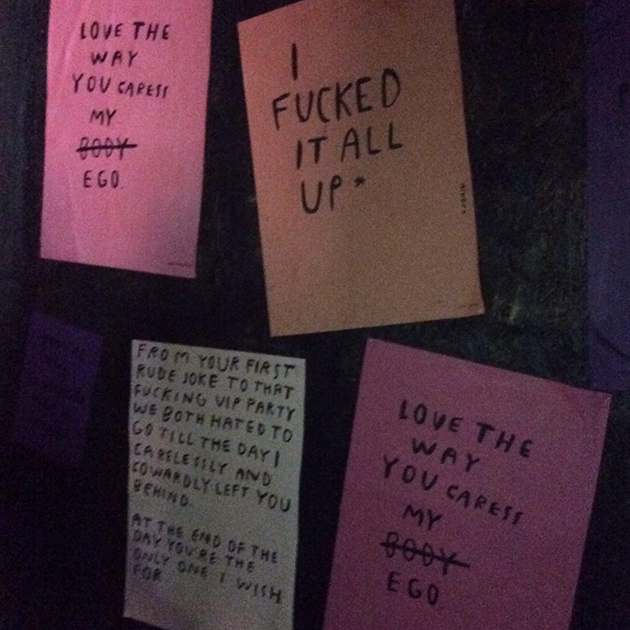 LOVE THE
WAY
YOU CARESS
MY
BODY
EGO
I
FUCKED
IT ALL
UP*
FROM YOUR FIRST
RUDE JOKE TO THAT
FUCKING VIP PARTY
WE BOTH HATED TO
GO TILL THE DAY I
CARELESSLY AND
COWARDLY LEFT YOU
BEHIND.
AT THE END OF THE
DAY YOU'RE THE
ONLY ONE I WISH
FOR
LOVE THE
WAY
YOU CARESS
MY
BODY
EGO